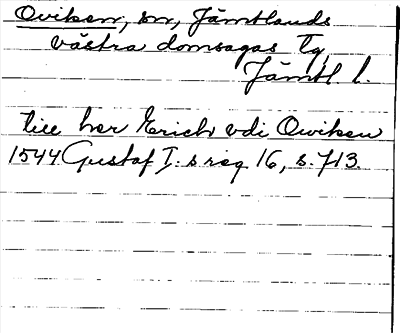 Oviken, sn, Jämtlands
västra domsagas tg,
Jämtl. l.
till her Erich vdi Owiken
1544 Gustaf I:s reg 16, s. 713